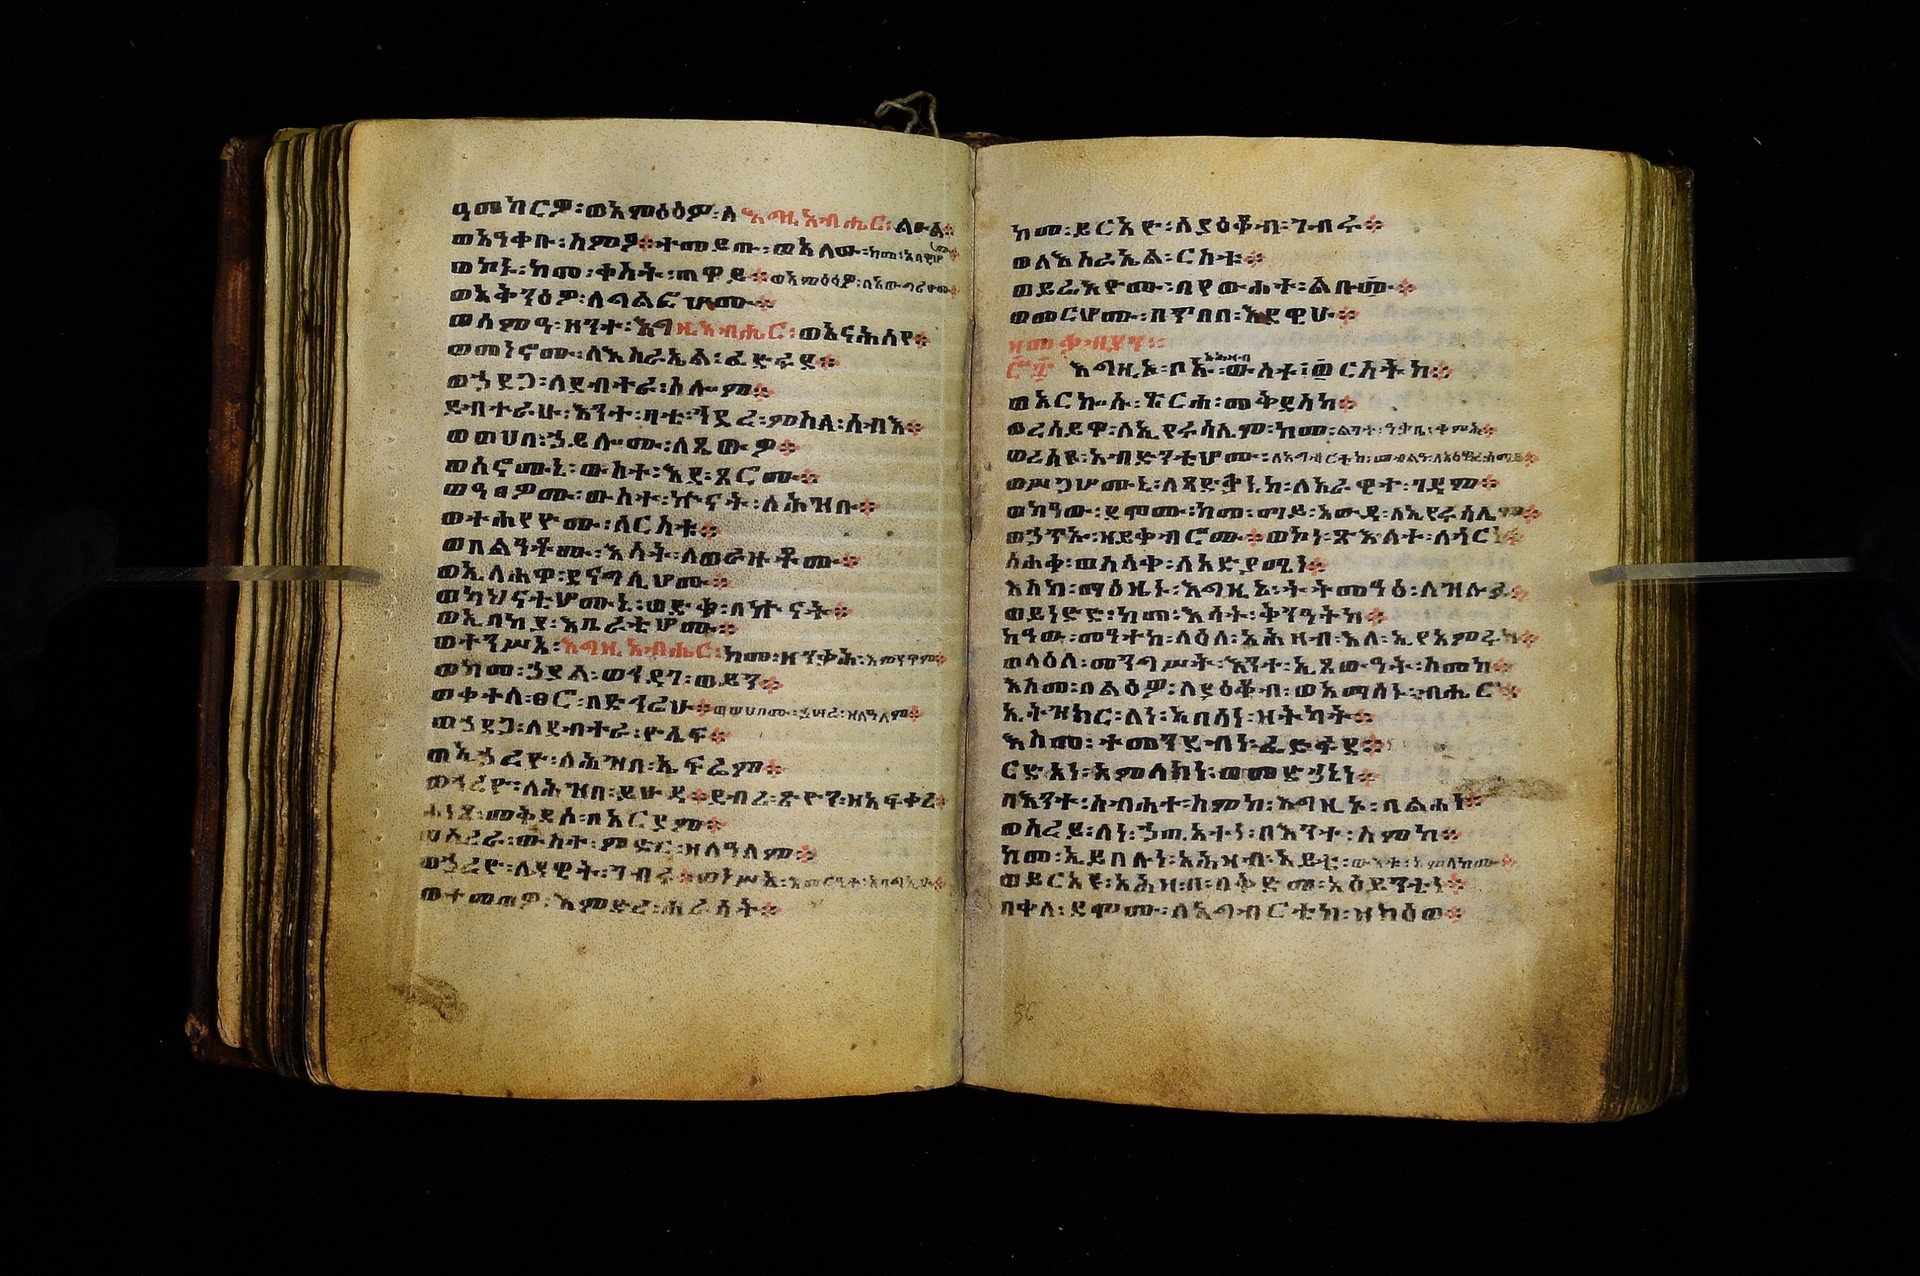 ዓመከርዎ፡ወአምዕዕዎ፡ለእግዚአብሔር፡ልዑል፨
ወአዓቀቡ፡ስምዖ፨ተመይጡ፡ወአለዉ፡ከመ፡አበዊሆሙ፨
ወኮኑ፡ከመ፡ቀስት፡ጠዋይ፨ወአምዕዕዎ፡በአውግሪሆሙ፨
ወአቅንዕዎ፡ለግልፎሆሙ፨
ወሰምዓ፡ዘንተ፡እግዚአብሔር፡ወአናሕሰየ፨
ወመነኖሙ፡ለእስራኤል፡ፈድፋደ፨
ወኃደጋ፡ለደብተራ፡ሴሎም፨
ደብተራሁ፡እንተ፡ባቲ፡ኀደረ፡ምስለ፡ሰብእ፨
ወወሀበ፡ኃይሎሙ፡ለጼውዎ፨
ወሠኖሙኒ፡ውስተ፡እደ፡ጸሮሙ፨
ወዓፀዎሙ፡ውስተ፡ኵናት፡ለሕዝቡ፨
ወተሐየዮሙ፡ለርስቱ፨
ወበልዓቶሙ፡እሳት፡ለወራዙቶሙ፨
ወኢላሐዋ፡ደናግሊሆሙ፨
ወካህናቲሆሙኒ፡ወድቁ፡በኵናት፨
ወኢበከያ፡እቤራቲሆሙ፨
ወተንሥአ፡እግዚአብሔር፡ከመ፡ዘንቃሕ፡እምንዋም፨
ወከመ፡ኃያል፡ወኀዳገ፡ወይን፨
ወቀተለ፡ፀሮ፡በድኅሬሁ፨ወወሀቦሙ፡ኃሣረ፡ዘለዓለም፨
ወኃደጋ፡ለደብተራ፡ዮሴፍ፨
ወኢኃረዮ፡ለሕዝበ፡ኤፍሬም፨
ወኀረዮ፡ለሕዝበ፡ይሁዳ፨ደብረ፡ጽዮን፡ዘአፍቀረ፨
ሐነጸ፡መቅደሰ፡በአርያም፨
ወሳረራ፡ውስተ፡ምድር፡ዘለዓለም፨
ወኃረዮ፡ለዳዊት፡ገብሩ፨ወነሥአ፡እመርዔተ፡አባግኢሁ፨
ወተመጠዎ፡እምድኅረ፡ሐራሳት፨
ከመ፡ይርአዮ፡ለያዕቆብ፡ገብሩ፨
ወለእስራኤል፡ርስቱ፨
ወይሬእዮሙ፡በየውሐተ፡ልቡ፨
ወመርሆሙ፡በጥበበ፡እደዊሁ፨
ዘመቃብያን፡፡
፸፰ እግዚኦ፡ቦኡ፡አሕዛብ፡ውስተ፡ርስትከ፨
ወአርኰሱ፡ጽርሐ፡መቅደስከ፨
ወረሰይዋ፡ለኢየሩሳሌም፡ከመ፡ልገተ፡ዓቃቤ፡ቀምሕ፨
ወረሰዩ፡አብድንቲሆሙ፡ለአግብርቲከ፡መብልዓ፡ለአዕዋፈ፡ሰማይ፨
ወሥጋሆሙኒ፡ለጻድቃኒከ፡ለአራዊተ፡ገዳም፨
ወከዓዉ፡ደሞሙ፡ከመ፡ማይ፡አውዳ፡ለኢየሩሳሌም፨
ወኃጥኡ፡ዘይቀብሮሙ፨ወኮነ፡ጽእለተ፡ለጎርነ፨
ሰሐቀ፡ወስላቀ፡ለአድያሚነ፨
እስከ፡ማዕዜኑ፡እግዚኦ፡ትትመዓዕ፡ለዝሉፉ፨
ወይነድድ፡ከመ፡እሳት፡ቅንዓትከ፨
ከዓው፡መዓተከ፡ላዕለ፡አሕዛብ፡እለ፡ኢየአምሩከ፨
ወላዕለ፡መንግሥት፡እንተ፡ኢጸውዓት፡ስመከ፨
እስመ፡በልዕዎ፡ለያዕቆብ፡ወአማሰኑ፡ብሔሮ፨
ኢትዝክር፡ለነ፡አበሳነ፡ዘትካት፨
እስመ፡ተመንደብነ፡ፈድፋደ፨
ርድአነ፡አምላክነ፡ወመድኃኒነ፨
በእንተ፡ስብሐተ፡ስምከ፡እግዚኦ፡ባልሐነ፨
ወስረይ፡ለነ፡ኃጢአተነ፡በእንተ፡ስምከ፨
ከመ፡ኢይበሉነ፡አሕዛብ፡አይቴ፡ውእቱ፡አምላክሙ፨
ወይርአዩ፡አሕዛብ፡በቅድመ፡አዕይንቲነ፨
በቀለ፡ደሞሙ፡ለአግብርቲከ፡ዝክዕወ፨
56